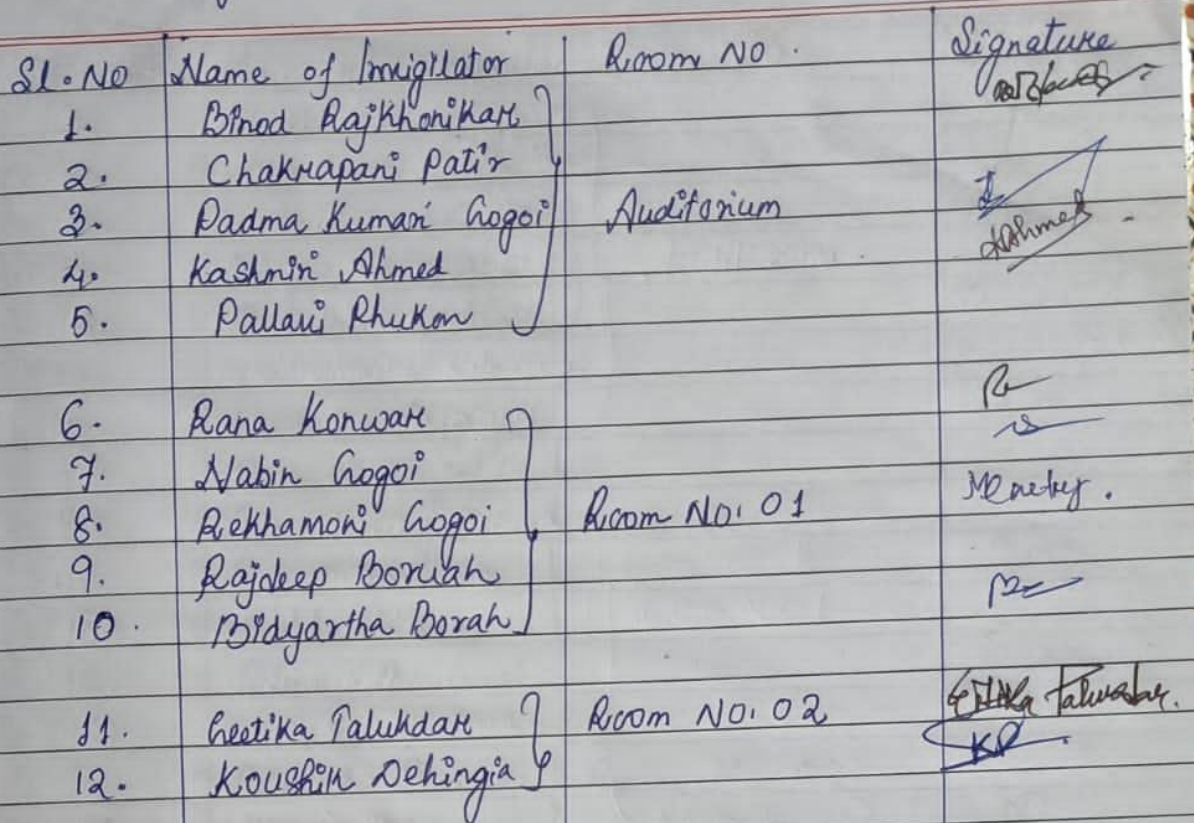 Sl. No Name of Invigilator Room No. Signature
1. Binod Rajkhonikar
2. Chakrapani Patir
3. Padma Kumari Gogoi Auditorium
4. Kashmiri Ahmed KAhmed
5. Pallavi Phukon
6. Rana Konwar
7. Nabin Gogoi
8. Rekhamoni Gogoi Room No. 01
9. Rajdeep Boruah
10. Bidyartha Borah
11. Geetika Talukdar Room No. 02 Geetika Talukdar.
12. Koushik Dehingia KD